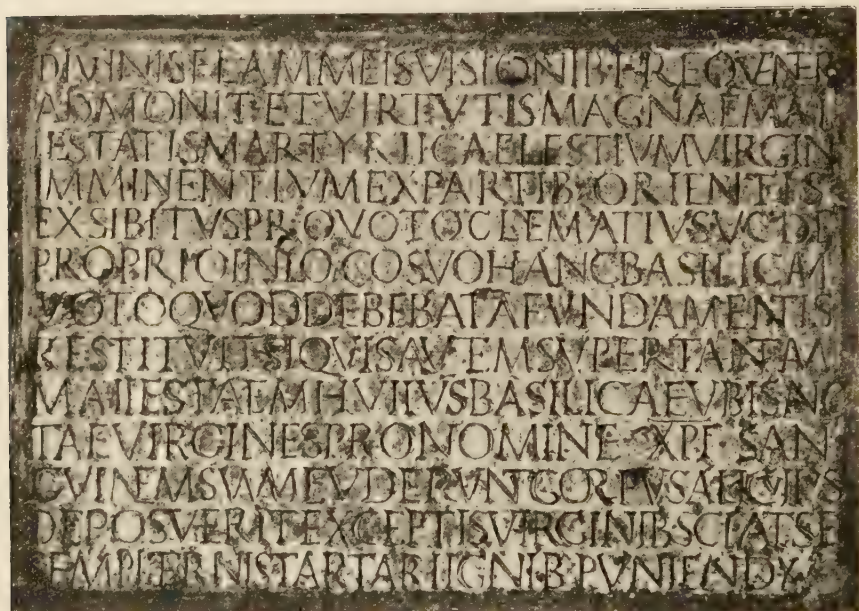 DIVINISFLAMMEISVISIONIBFREQVENTER
ADMONITETVIRTVTISMAGNAEMAI
IESTATISMARTYRIICAELESTIVMVIRGIN
IMMINENTIVMEXPARTIBORIENTIS
EXSIBITVSPROVOTOCLEMATIVSVCDE
PROPRIOINLOCOSVOHANCBASILICAM
VOTOQVODDEBEBATAFVNDAMENTIS
RESTITVITSIQVISAVTEMSVPERTANTAM
MAIIESTATEMHVIIVSBASILICAEVBISANC
TAEVIRGINESPRONOMINEXPISAN
GVINEMSVVMFVDERVNTCORPVSALICVIVS
DEPOSVERITEXCEPTISVIRGINIBSCIATSE
SEMPITERNISTARTARIIGNIBPVNIENDVM